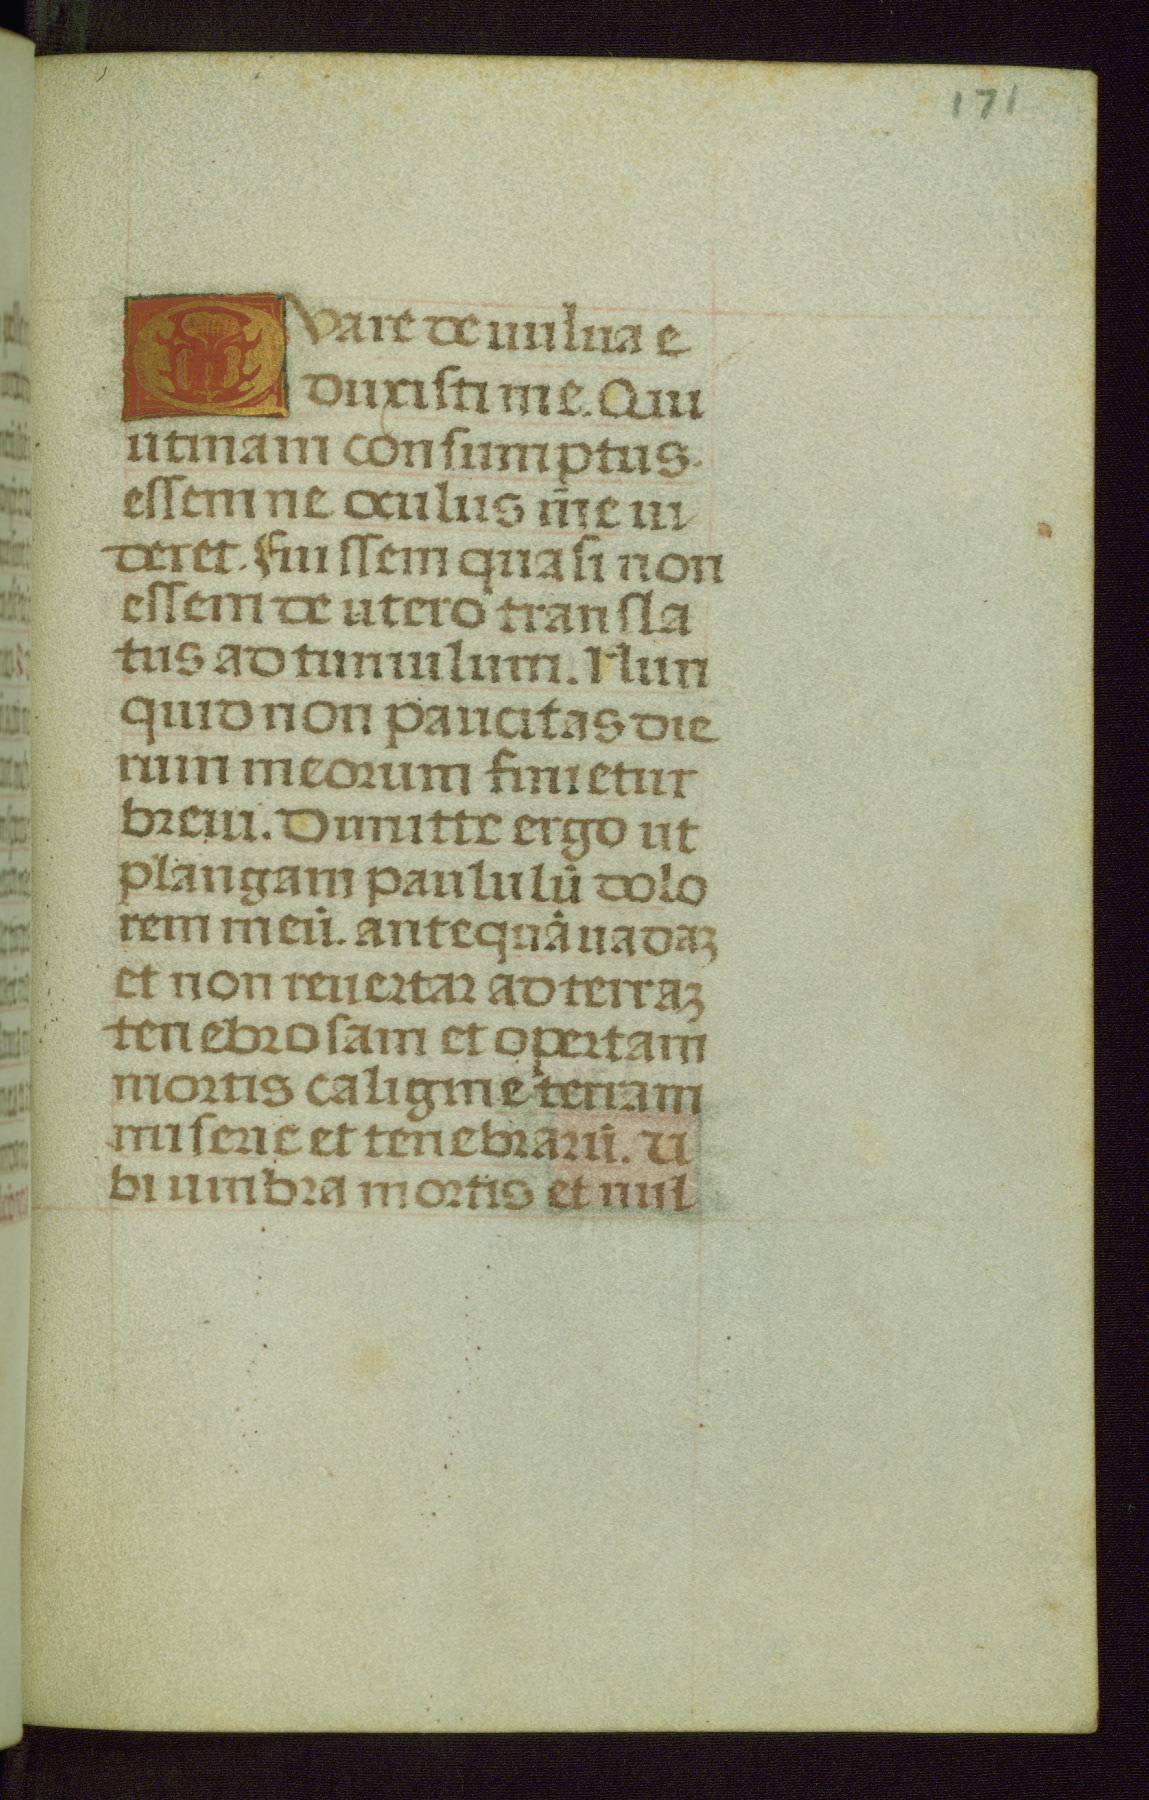 171
QVare de uulua e
duxisti me. Qui
utinam consumptus
essem ne oculus m̄e ui
deret. Fuissem quasi non
essem de utero transla
tus ad tumulum. Nun
quid non paucitas die
rum meorum finietur
breui. Dimitte ergo ut
plangam paululū dolo
rem meū. antequā uadaꝫ
et non reuertar ad terraꝫ
tenebrosam et opertam
mortis caligine terram
miserie et tenebrarū. U
bi umbra mortis et nul